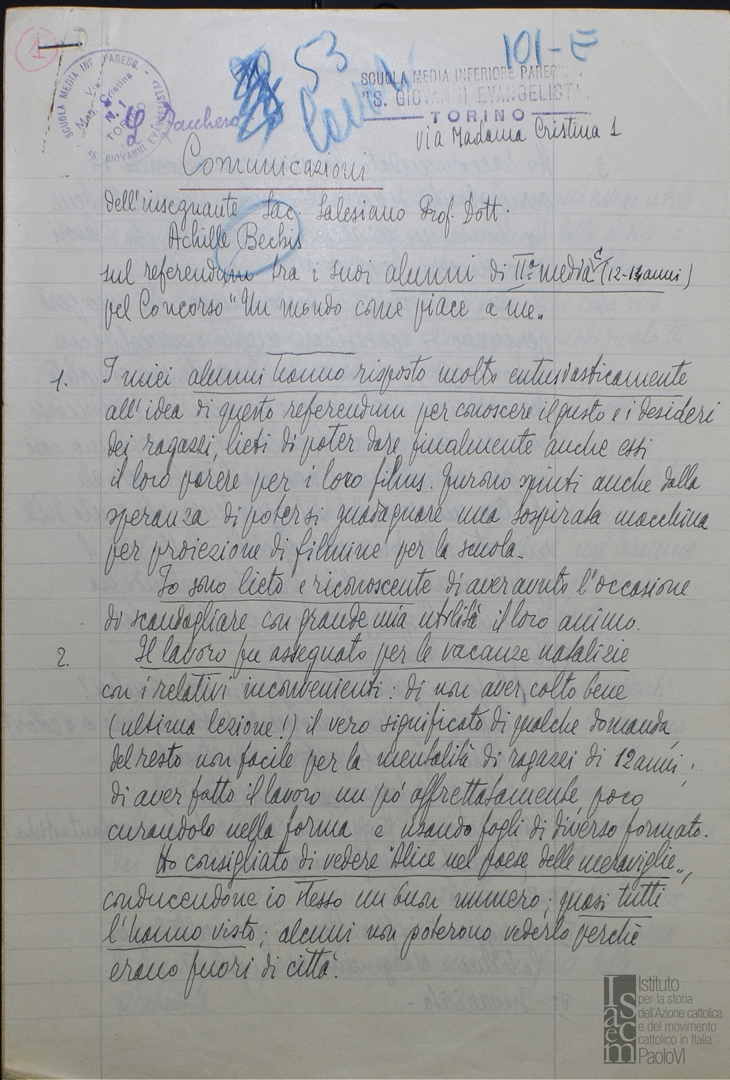 1
SCUOLA MEDIA INF. PAREGG.
Via Mad. Cristina
N. 1
TORINO
S. GIOVANNI EVANGELISTA
53
101-E
SCUOLA MEDIA INFERIORE PAREG
"S. GIOVANNI EVANGELISTA
TORINO
via Madama Cristina 1
Comunicazioni
dell'insegnante Sac. Salesiano Prof. Dott.
Achille Bechis
sul referendum tra i suoi alunni di IIª media C (12-13 anni)
pel Concorso "Un mondo come piace a me„
1. I miei alunni hanno risposto molto entusiasticamente
all'idea di questo referendum per conoscere il gusto e i desideri
dei ragazzi, lieti di poter dare finalmente anche essi
il loro parere per i loro films. Furono spinti anche dalla
speranza di potersi guadagnare una sospirata macchina
per proiezione di filmine per la scuola.
Io sono lieto e riconoscente di aver avuto l'occasione
di scandagliare con grande mia utilità il loro animo.
2. Il lavoro fu assegnato per le vacanze natalizie
con i relativi inconvenienti: di non aver colto bene
(ultima lezione!) il vero significato di qualche domanda,
del resto non facile per la mentalità di ragazzi di 12 anni;
di aver fatto il lavoro un po' affrettatamente, poco
curandolo nella forma e usando fogli di diverso formato.
Ho consigliato di vedere "Alice nel paese delle meraviglie„,
conducendone io stesso un buon numero; quasi tutti
l'hanno visto; alcuni non poterono vederlo perchè
erano fuori di città.
Isacem
Istituto
per la storia
dell'Azione cattolica
e del movimento
cattolico in Italia
PaoloVI